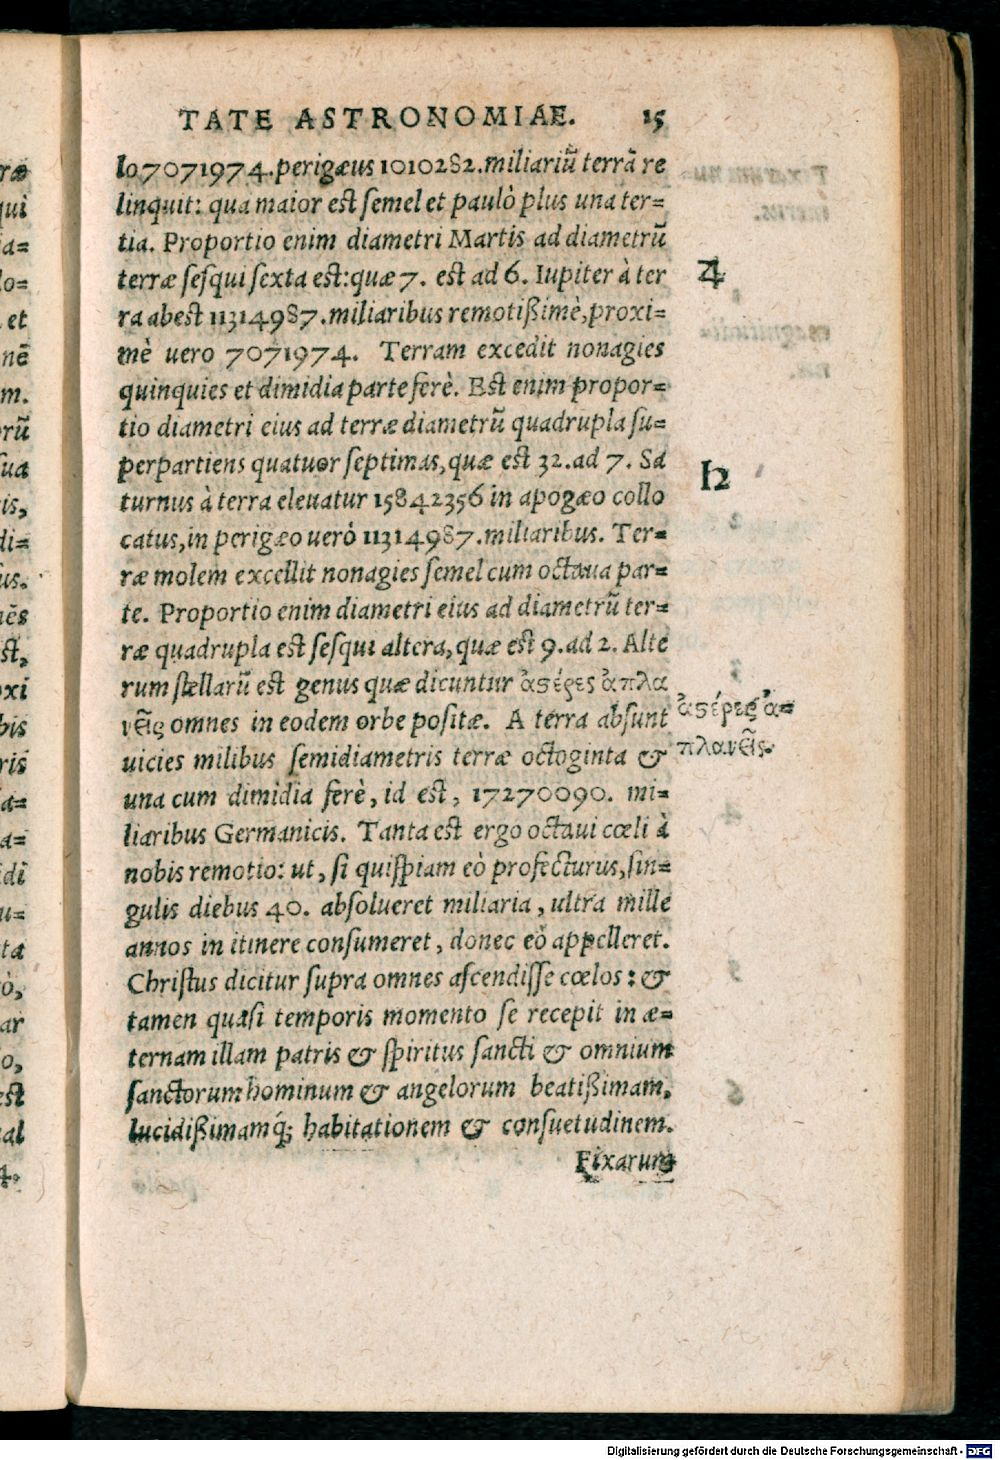 TATE ASTRONOMIAE. 15
lo 7071974. perigæus 1010282. miliariũ terrã re
linquit: qua maior est semel et paulò plus una ter=
tia. Proportio enim diametri Martis ad diametrũ
terræ sesqui sexta est: quæ 7. est ad 6. Iupiter à ter
ra abest 11314987. miliaribus remotißimè, proxi=
mè uero 7071974. Terram excedit nonagies
quinquies et dimidia parte ferè. Est enim propor=
tio diametri eius ad terræ diametrũ quadrupla su=
perpartiens quatuor septimas, quæ est 32. ad 7. Sa
turnus à terra eleuatur 15842356 in apogæo collo
catus, in perigæo uerò 11314987. miliaribus. Ter=
ræ molem excellit nonagies semel cum octaua par=
te. Proportio enim diametri eius ad diametrũ ter=
ræ quadrupla est sesqui altera, quæ est 9. ad 2. Alte
rum stellarũ est genus quæ dicuntur ἀστέρες ἀπλα
νεῖς omnes in eodem orbe positæ. A terra absunt
uicies milibus semidiametris terræ octoginta &
una cum dimidia ferè, id est, 17270090. mi=
liaribus Germanicis. Tanta est ergo octaui cœli à
nobis remotio: ut, si quispiam eò profecturus, sin=
gulis diebus 40. absolueret miliaria, ultra mille
annos in itinere consumeret, donec eò appelleret.
Christus dicitur supra omnes ascendisse cœlos: &
tamen quasi temporis momento se recepit in æ=
ternam illam patris & spiritus sancti & omnium
sanctorum hominum & angelorum beatißimam,
lucidißimamq́; habitationem & consuetudinem.
Fixarum
♃
♄
ἀστέρες ἀ=
πλανεῖς.
ræ
qui
ia=
lo=
et
nē
m.
orũ
sua
is,
di=
us.
nēs
st,
oxi
bis
ris
a=
a=
idi
u=
ta
ò,
ar
o,
est
ual
4.
Digitalisierung gefördert durch die Deutsche Forschungsgemeinschaft - DFG